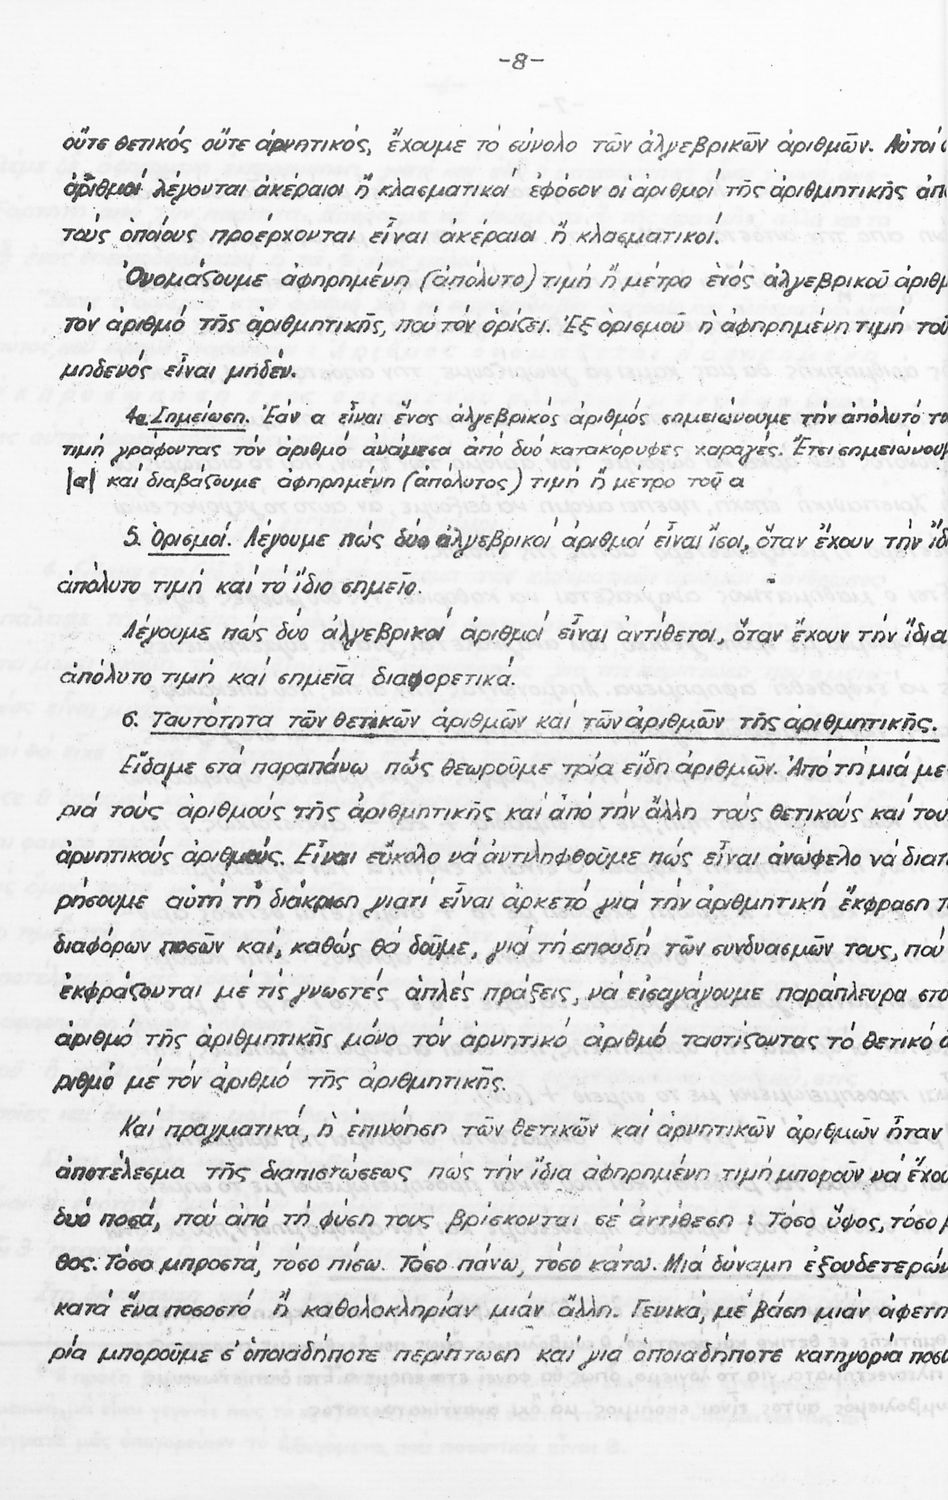 -8-
οὔτε θετικός οὔτε ἀρνητικός, ἔχουμε τό σύνολο τῶν ἀλγεβρικῶν ἀριθμῶν. Αὐτοί ο
ἀριθμοί λέγονται ἀκέραιοι ἤ κλασματικοί ἐφόσον οἱ ἀριθμοί τῆς ἀριθμητικῆς ἀπό
τούς ὁποίους προέρχονται εἶναι ἀκέραιοι ἤ κλασματικοί.
Ὀνομάζουμε ἀφηρημένη (ἀπόλυτο) τιμή ἤ μέτρο ἑνός ἀλγεβρικοῦ ἀριθμ
τόν ἀριθμό τῆς ἀριθμητικῆς, πού τόν ὁρίζει. Ἐξ ὁρισμοῦ ἡ ἀφηρημένη τιμή τοῦ
μηδενός εἶναι μηδέν.
4α Σημείωση. Ἐάν α εἶναι ἕνας ἀλγεβρικός ἀριθμός σημειώνουμε τήν ἀπόλυτό το
τιμή γράφοντας τόν ἀριθμό ἀνάμεσα ἀπό δυό κατακόρυφες χαραγές. Ἔτσι σημειώνουμ
|α| καί διαβάζουμε ἀφηρημένη (ἀπόλυτος) τιμή ἤ μέτρο τοῦ α
5. Ὁρισμοί. Λέγουμε πώς δύο ἀλγεβρικοί ἀριθμοί εἶναι ἴσοι, ὅταν ἔχουν τήν ἴδι
ἀπόλυτο τιμή καί τό ἴδιο σημεῖο.
Λέγουμε πώς δύο ἀλγεβρικοί ἀριθμοί εἶναι ἀντίθετοι, ὅταν ἔχουν τήν ἴδια
ἀπόλυτο τιμή καί σημεῖα διαφορετικά.
6. Ταυτότητα τῶν θετικῶν ἀριθμῶν καί τῶν ἀριθμῶν τῆς ἀριθμητικῆς.
Εἴδαμε στά παραπάνω πώς θεωροῦμε τρία εἴδη ἀριθμῶν. Ἀπό τή μιά με-
ριά τούς ἀριθμούς τῆς ἀριθμητικῆς καί ἀπό τήν ἄλλη τούς θετικούς καί τού
ἀρνητικούς ἀριθμούς. Εἶναι εὔκολο νά ἀντιληφθοῦμε πώς εἶναι ἀνώφελο νά διατη
ρήσουμε αὐτή τή διάκριση γιατί εἶναι ἀρκετό γιά τήν ἀριθμητική ἔκφραση τ
διαφόρων ποσῶν καί, καθώς θά δοῦμε, γιά τή σπουδή τῶν συνδυασμῶν τους, πού
ἐκφράζονται μέ τίς γνωστές ἁπλές πράξεις, νά εἰσαγάγουμε παράπλευρα στό
ἀριθμό τῆς ἀριθμητικῆς μόνο τόν ἀρνητικό ἀριθμό ταυτίζοντας τό θετικό ἀ
ριθμό μέ τόν ἀριθμό τῆς ἀριθμητικῆς.
Καί πραγματικά, ἡ ἐπινόηση τῶν θετικῶν καί ἀρνητικῶν ἀριθμῶν ἦταν
ἀποτέλεσμα τῆς διαπιστώσεως πώς τήν ἴδια ἀφηρημένη τιμή μποροῦν νά ἔχου
δυό ποσά, πού ἀπό τή φύση τους βρίσκονται σέ ἀντίθεση : Τόσο ὕψος, τόσο β
θος. Τόσο μπροστά, τόσο πίσω. Τόσο πάνω, τόσο κάτω. Μιά δύναμη ἐξουδετερών
κατά ἕνα ποσοστό ἤ καθολοκληρίαν μιάν ἄλλη. Γενικά, μέ βάση μιάν ἀφετη
ρία μποροῦμε σ' ὁποιαδήποτε περίπτωση καί γιά ὁποιαδήποτε κατηγορία ποσῶ